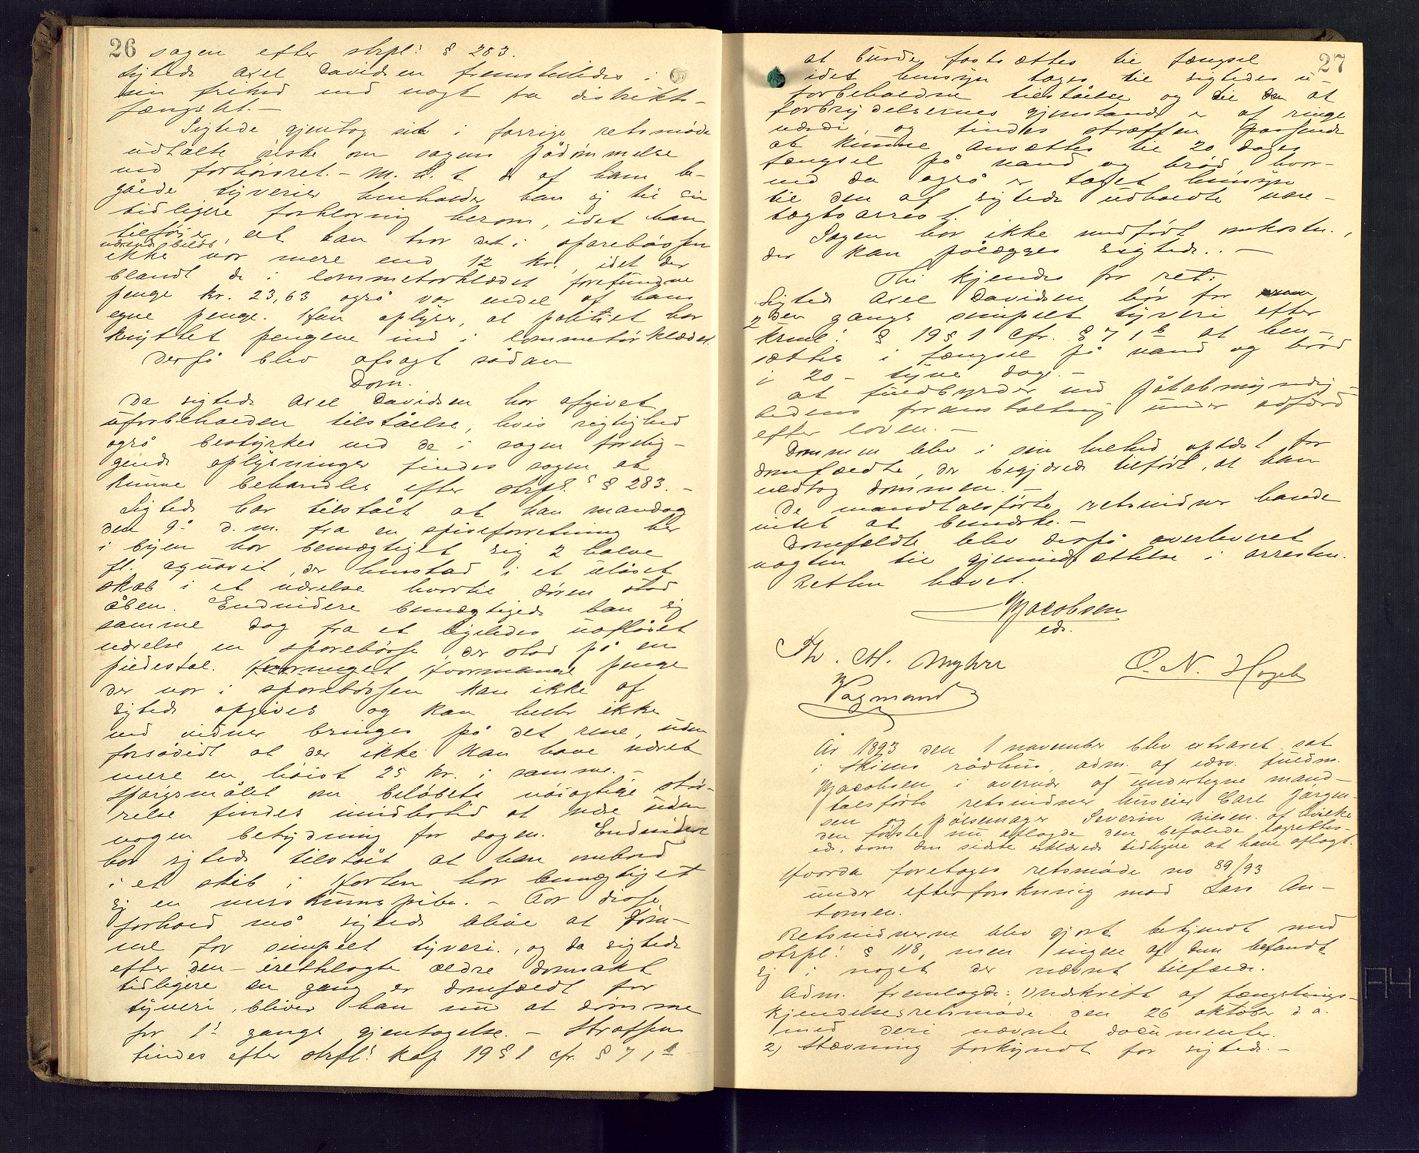 26
sagen efter strpl: § 283.
Sigtede Axel Davidsen fremstilledes i
sin frihed med vagt fra distrikts-
fængslet. -
Sigtede gjentog sit i forrige retsmøde
udtalte ønske om sagens pådømmelse
ved forhørsret. - M. h. t. de af ham be-
gåede tyverier henholder han sig til sin
tidligere forklaring herom, idet han
tilføier, at han tror det i sparebøssen
værende beløb
ikke var mere end 12 kr. idet der
blandt de i lommetørklædet forefundne
penge kr. 23,63 også var endel af hans
egne penge. Han oplyser, at politiet har
knyttet pengene ind i lommetørklædet.
Derpå blev afsagt sådan
Dom.
Da sigtede Axel Davidsen har afgivet
uforbeholden tilståelse, hvis rigtighed
også bestyrkes ved de i sagen forelig-
gende oplysninger findes sagen at
kunne behandles efter strpl. § 283. -
Sigtede har tilstået at han mandag
den 9de d. m. fra en spiseforretning her
i byen har bemægtiget sig 2 halve
fl. aquavit, der henstod i et ulåset
skab i et værelse hvortil døren stod
åben. Endvidere bemægtigede han sig
samme dag fra et ligeledes uaflåset
værelse en sparebøsse, der stod på en
piedestal. Hvormange penge
der var i sparebøssen kan ikke af
sigtede opgives og kan heller ikke
ved vidner bringes på det rene, uden
forsåvidt at der ikke kan have været
mere en høist 25 kr. i samme. -
Spørgsmålet om beløbets nøiagtige stør-
relse findes imidlertid at være uden
nogen betydning for sagen. Endvidere
har sigtede tilstået at han ombord
i et skib i Porten har bemægtiget
sig en merskumspibe. - For disse
forhold må sigtede blive at døm-
me for simpelt tyveri, og da sigtede
efter den irettelagte ældre domsakt
tidligere en gang er domfældt for
tyveri, bliver han nu at dømme
for 1ste gangs gjentagelse. - Straffen
findes efter strfl: kap 19 § 1 cfr. § 7, 1ste
27
at burde fastsættes til fængsel
idet hensyn tages til sigtedes u-
forbeholdne tilståelse og til den at
forbrydelsernes gjenstande er af ringe
værdi, og findes straffen passende
at kunne ansættes til 20 dages
fængsel på vand og brød hvor-
ved da også er taget hensyn
til den af sigtede udholdte vare-
tægtsarrest.
Sagen har ikke medført omkostn.,
der kan pålægges sigtede. -
Thi kjendes for ret:
Sigtede Axel Davidsen bør for
2den gangs simpelt tyveri efter
krml: § 19 § 1 cfr. § 7, 1ste at hen-
sættes i fængsel på vand og brød
i 20 - tyve dage. -
At fuldbyrdes ved påtalemyndig-
hedens foranstaltning under adfærd
efter loven. -
Dommen blev i sin helhed oplæst for
domfældte, der begjærede tilført, at han
vedtog dommen. -
De mandtalsførte retsvidner havde
intet at bemærke. -
Domfældte blev derpå overleveret
vagten til gjenindsættelse i arresten.
Retten hævet.
Wjacobsen
eds.
Th. M. Myhre C. N. Hagel
Vagmand
År 1893 den 1 november blev extraret sat
i Skiens rådhus, adm. af edsv. fuldm.
Wjacobsen i overvær af undertegnede mand-
talsførte retsvidner hussier Carl Jørgen-
sen og pølsemager Severin Nielsen. af hvilke
den første nu aflagde den befalede lagrettes-
ed, som den sidste erklærede tidligere at have aflagt.
Hvorda foretoges retsmøde no 89/93
under efterforskning mod Lars An-
tonsen.
Retsvidnerne blev gjort bekjendt med
strpl: § 118, men ingen af dem befandt
sig i noget der nævnt tilfælde.
Adm. fremlagde: 1) Udskrift af fængslings-
kjendelsesretsmøde den 26 oktober d. a.
med deri nævnte documenter.
2, Stævning forkyndt for sigtede. -